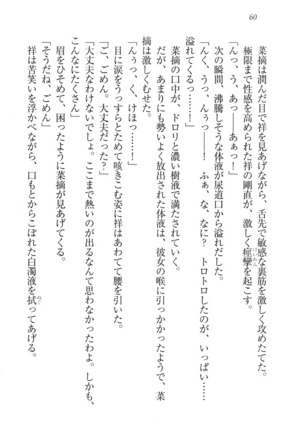 60
菜摘は潤んだ目で祥を見あげながら、舌先で敏感な裏筋を激しく攻めたてた。
極限まで性感を高められた祥の剛直が、激しく痙攣を起こす。
「んっ、う、あっ――あぁっ！」
「んく、うっ、んぅっ――！　ふぁ、な、なに？　トロトロしたのが、いっぱい……
溢れてくる……っ！」
菜摘の口中が、ドロリと濃い樹液で満たされていく。
が、あまりにも勢いよく放出された体液は、彼女の喉に引っかかったようで、菜
摘は激しくむせた。
「んぅっ、く、けほっ……！」
目に涙をうっすらとためて咳きこむ姿に祥はあわてて腰を引いた。
「ご、ごめん。大丈夫だった？」
「大丈夫なわけないでしょ。ここまで熱いのが出るなんて思わなかったわよ。しかも、
こんなにたくさん」
眉をひそめて、困ったように菜摘が見あげてくる。
「そうだね、ごめん」
祥は苦笑いを浮かべながら、口もとからこぼれた白濁液を拭ってあげる。